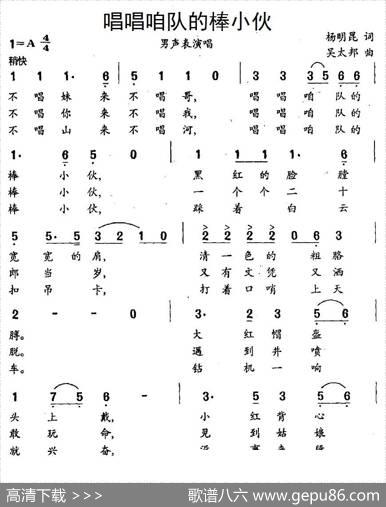 唱唱咱队的棒小伙
1=A 4/4
杨明昆 词
男声表演唱
吴太邦 曲
稍快
1 1 1· 6 5 5 5 0 3 3 3 5 5 0
不 唱 妹 来 不 唱 哥, 唱 唱 咱 队 的
不 唱 你 来 不 唱 我, 唱 唱 咱 队 的
不 唱 山 来 不 唱 河, 唱 唱 咱 队 的
1· 6 5 0 1 1 1· 6
棒 小 伙, 黑 红 的 脸 膛
棒 小 伙, 一 个 个 二 十
棒 小 伙, 踩 着 白 云
5 5· 5 3 2 1 0 2 2 2 0 6 6
宽 宽 的 肩, 清 一 色 的 粗 胳
郎 当 岁, 又 有 文 凭 又 洒
扣 吊 卡, 打 着 口 哨 上 天
2 - - 0 3· 2 3 5 6
膊。 大 红 帽 盔
脱。 遇 到 井 喷
车。 钻 机 一 响
1 7 5 6 - - 3· 5 3 5 6
头 上 戴, 小 红 背 心
敢 玩 命, 见 到 姑 娘
就 兴 奋,
高清下载 >>>
歌谱八六 www.gepu86.com